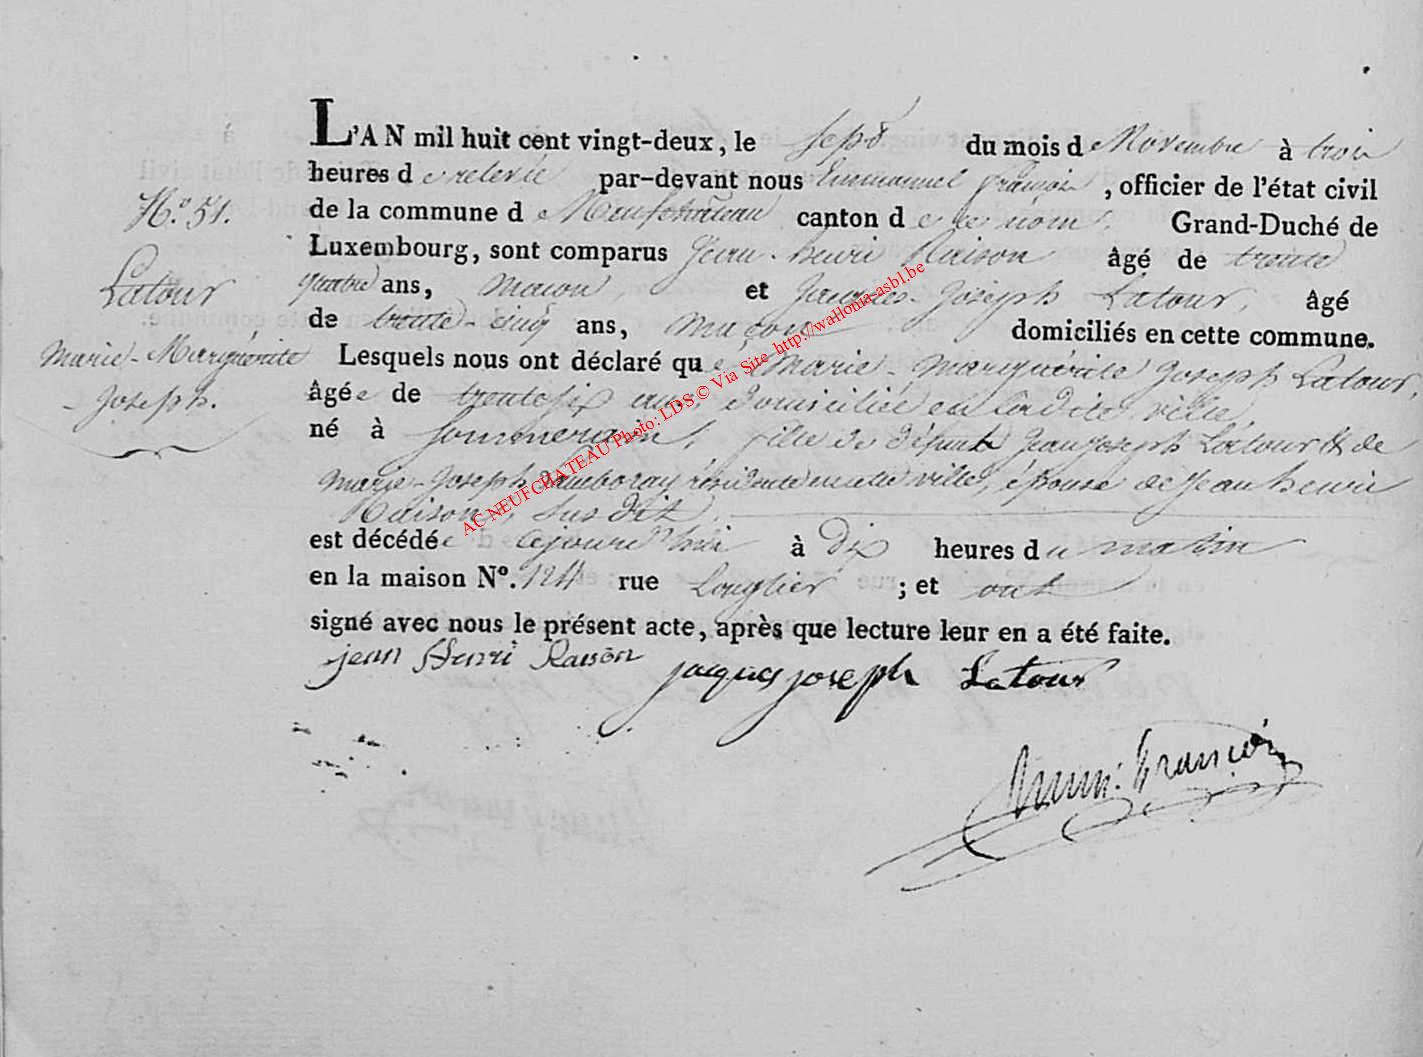 L'AN mil huit cent vingt-deux, le sept du mois de Novembre à trois
heures de relevée par-devant nous Emmanuel françois, officier de l'état civil
N.º 51.
de la commune de Neufchâteau canton de ce nom, Grand-Duché de
Luxembourg, sont comparus Jean-henri Raison âgé de trente
Latour
quatre ans, maçon et Jacques-Joseph Latour, âgé
de trente-cinq ans, maçon domiciliés en cette commune.
Marie-Marguérite
Lesquels nous ont déclaré que Marie-Marguérite Joseph Latour,
Joseph.
âgée de trente six ans, domiciliée en ladite ville
né à fille de défunt Jean joseph Latour & de
Marie-Joseph résidente en cette ville, épouse de Jean henri
Raison, susdit
est décédée cejourd'hui à dix heures du matin
en la maison Nº. 124 rue Longlier ; et ont
signé avec nous le présent acte, après que lecture leur en a été faite.
jean Henri Raison jacques joseph Latour
Emm. françois
AC NEUFCHATEAU Photo: LDS © Via Site http://wallonia-asbl.be